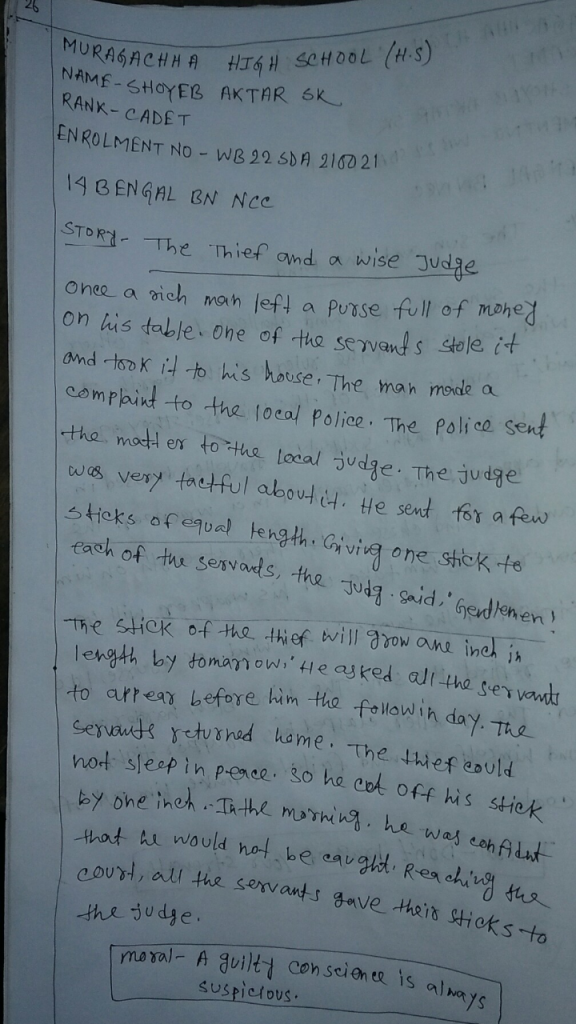 26
MURAGACHHA HIGH SCHOOL (H.S)
NAME-SHOYEB AKTAR SK
RANK-CADET
ENROLMENT NO - WB 22 SDA 216021
14 BENGAL BN NCC
STORY- The Thief and a wise Judge
Once a rich man left a purse full of money
on his table. one of the servants stole it
and took it to his house. The man made a
complaint to the local police. The police sent
the matter to the local judge. The judge
was very tactful about it. He sent for a few
sticks of equal length. Giving one stick to
each of the servants, the Judg. said, "Gentlemen!
The stick of the thief will grow one inch in
length by tomarrow." He asked all the servants
to appear before him the followin day. The
servants returned home. The thief could
not sleep in peace. so he cut off his stick
by one inch. In the morning. he was confidnt
that he would not be caught. Reaching the
court, all the servants gave their sticks to
the judge.
moral- A guilty conscience is always
suspicious.